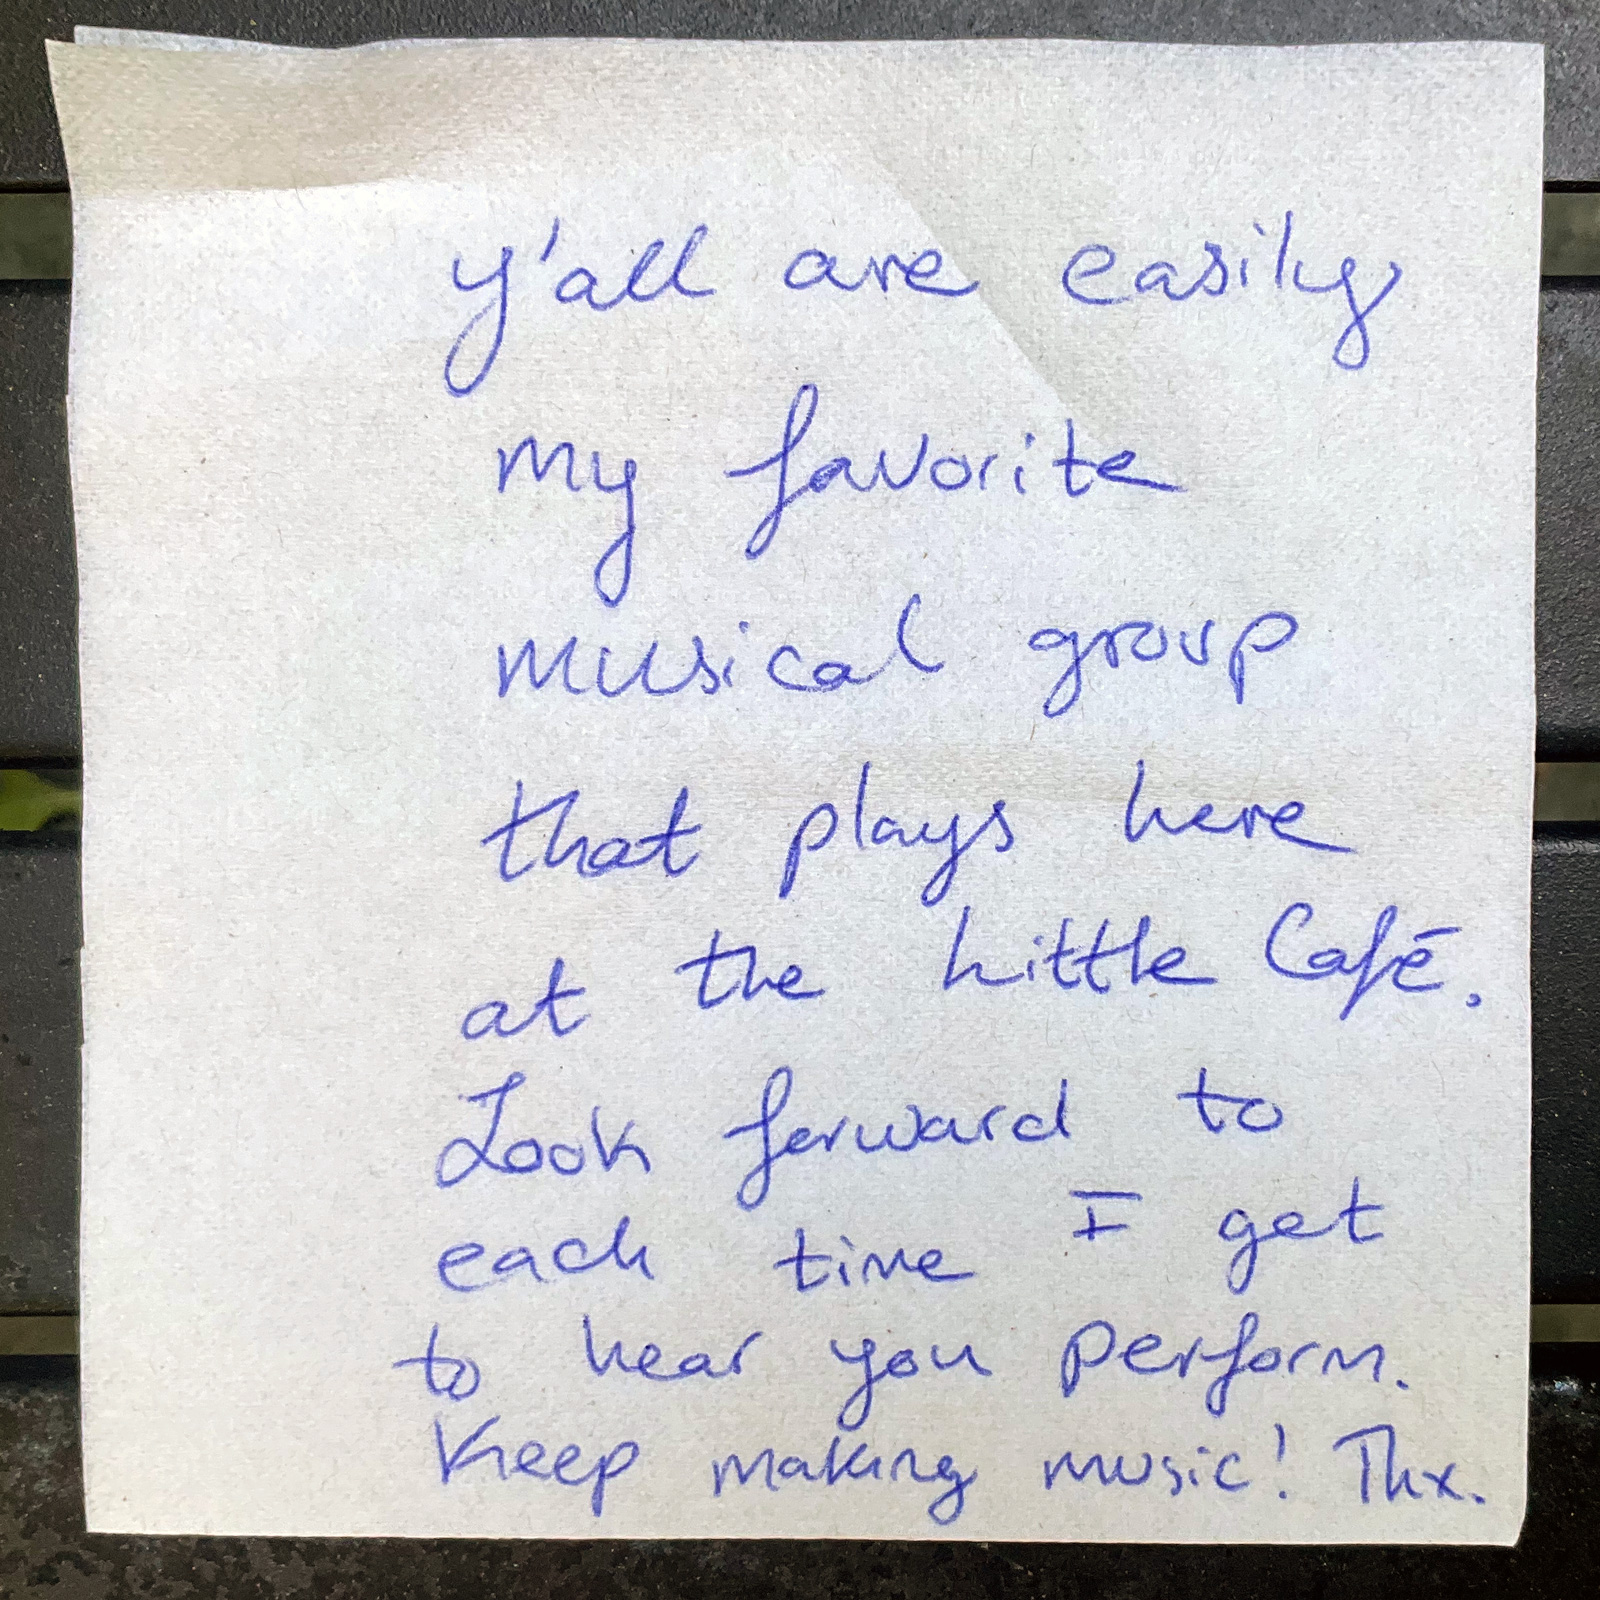 y'all are easily
my favorite
musical group
that plays here
at the Little Café.
Look forward to
each time I get
to hear you perform.
Keep making music! Thx.